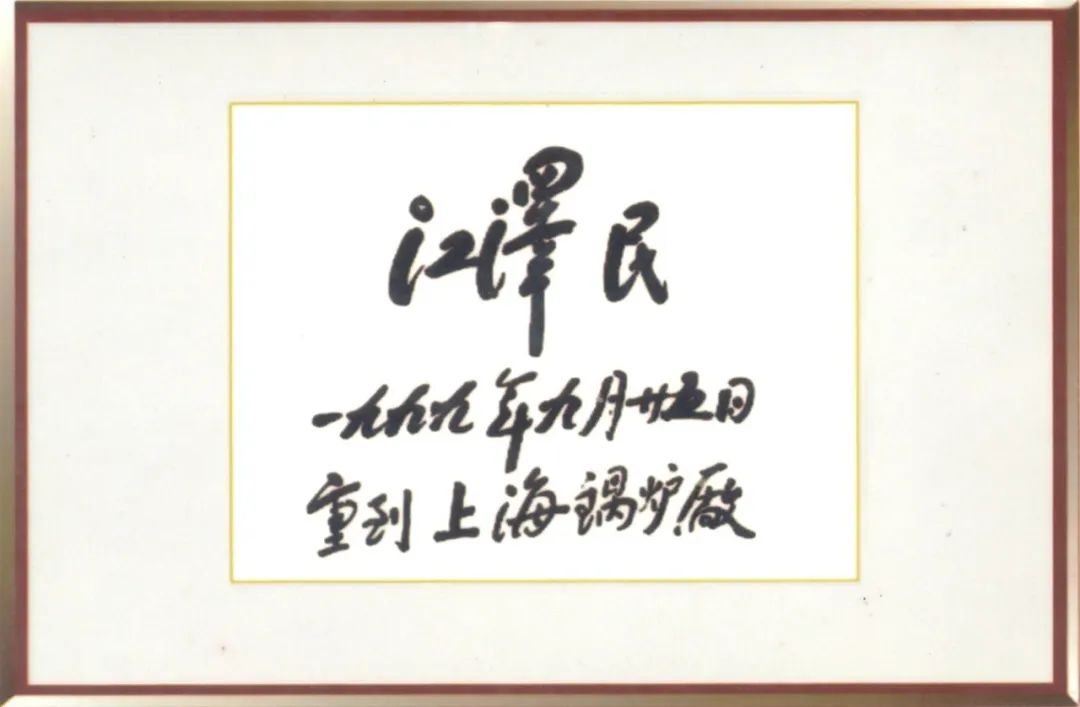 江澤民
一九九九年九月廿五日
重到上海鍋炉廠